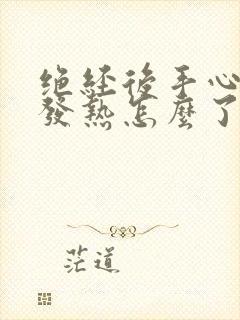 绝经後手心
發熱怎麼了
茫道